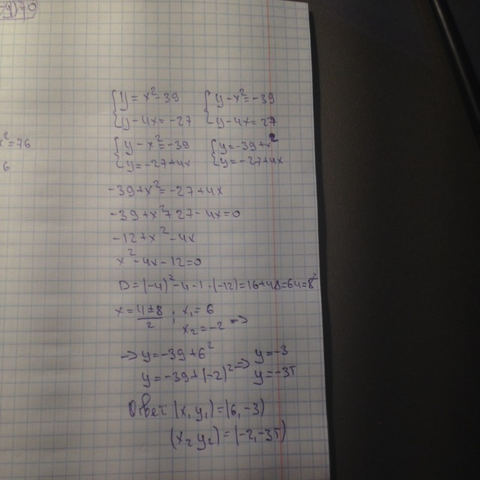 -9)79
x²=76
6
{y=x²-39 {y-x²=-39
{y-4x=-27 {y-4x=27
{y-x²=-39 {y=-39+x²
{y=-27+4x {y=-27+4x
-39+x²=-27+4x
-39+x²+27-4x=0
-12+x²-4x
x²-4x-12=0
D=(-4)²-4·1·(-12)=16+48=64=8²
x=4±8/2; x₁=6
x₂=-2 =>
=> y=-39+6² => y=-3
y=-39+(-2)² y=-35
Ответ (x₁y₁)=(6,-3)
(x₂y₂)=(-2,-35)